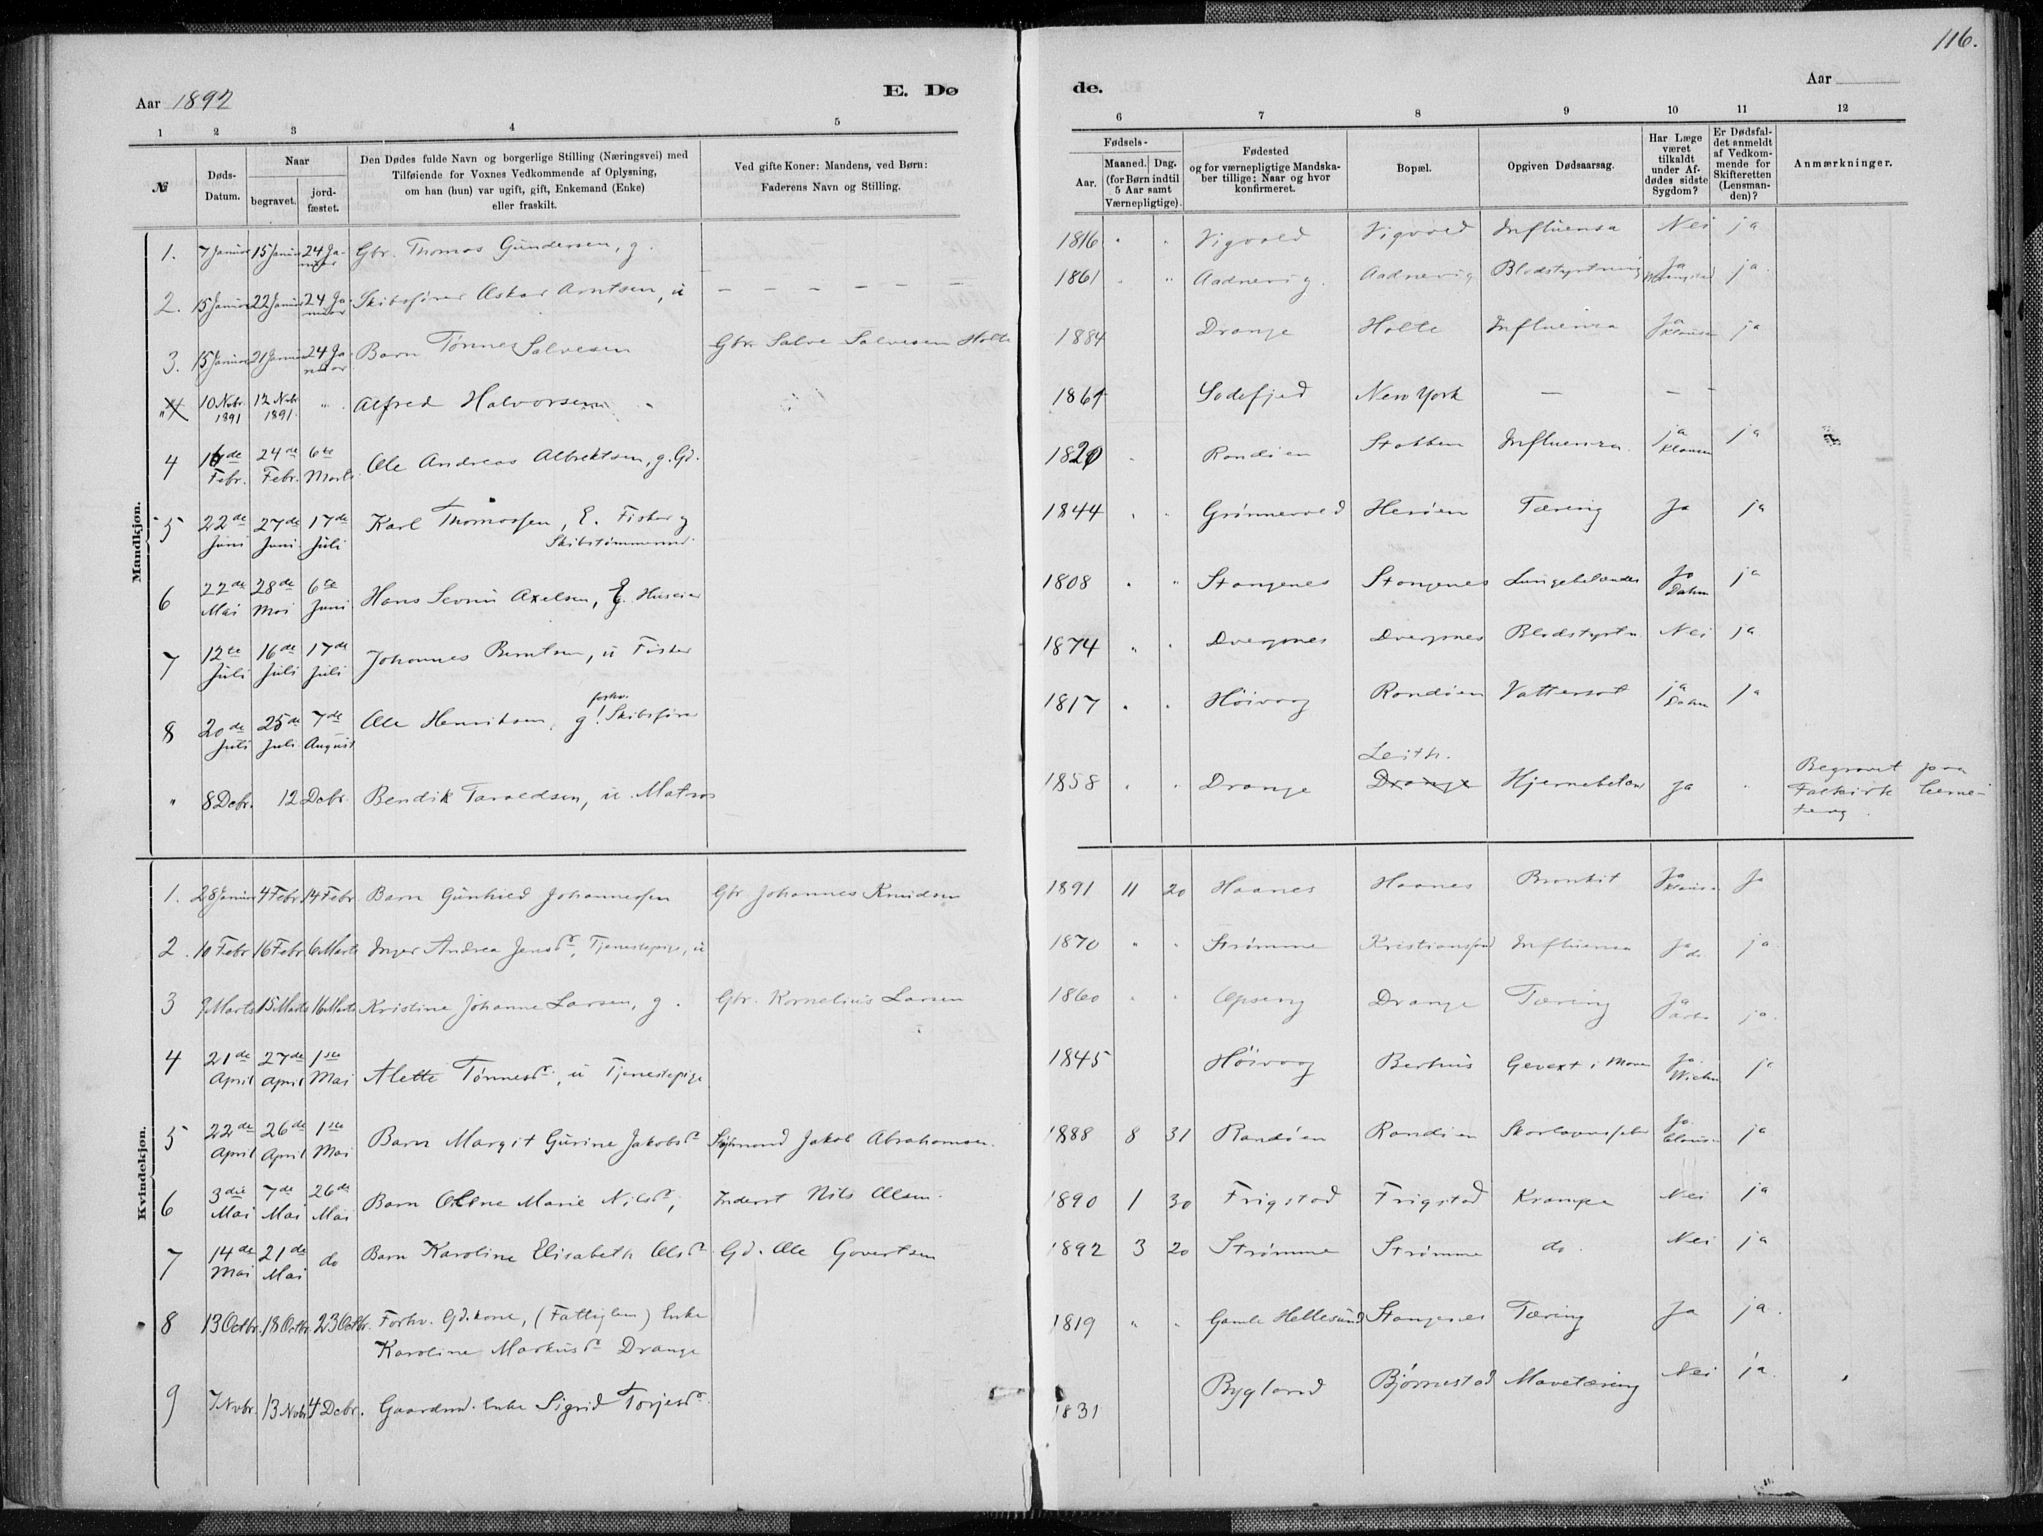 116.
Aar 1892
E. Dø
de.
Aar
1 2 3 4 5 6 7 8 9 10 11 12
№
Døds-
Datum.
Naar
begravet.
jord-
fæstet.
Den Dødes fulde Navn og borgerlige Stilling (Næringsvei) med
Tilføiende for Voxnes Vedkommende af Oplysning,
om han (hun) var ugift, gift, Enkemand (Enke)
eller fraskilt.
Ved gifte Koner: Mandens, ved Børn:
Faderens Navn og Stilling.
Fødsels-
Aar.
Maaned. Dag.
(for Børn indtil
5 Aar samt
Værnepligtige).
Fødested
og for værnepligtige Mandska-
ber tillige: Naar og hvor
konfirmeret.
Bopæl.
Opgiven Dødsaarsag.
Har Læge
været
tilkaldt
under Af-
dødes sidste
Sygdom?
Er Dødsfal-
det anmeldt
af Vedkom-
mende for
Skifteretten
(Lensman-
den)?
Anmærkninger.
Mandkjøn.
1. 7 Januar 15 Januar 24 Januar Gbr. Thomas Gundersen, g. 1816 Vigvold Vigvold Influensa Nei ja
2. 15 Januar 22 Januar 24 Januar Skibsfører Oskar Arntsen, u 1861 Aadnevig. Aadnevig Blodstyrtning Ja ja.
3. 15 Januar 21 Januar 24 Januar Barn Tønnes Salvesen Gbr. Salve Salvesen Holte 1884 Drange Holte Influensa Ja Klausen ja
10 Nobr 1891 12 Nobr 1891. " Alfred Halvorsen 1861 Sodefjed New York — —
4 16de Febr. 24de Febr. 6te Marts Ole Andreas Albrektsen, g. Gd. 1820 Randøen Stabben Influensa. ja Klausen ja
5 22de Juni 27de Juni 17de Juli Karl Thomassen, E. Fisker g Skibstømmermd 1844 Grønnevold Herøen Tæring Ja ja
6 22de Mai 28de Mai 6te Juni Hans Severin Axelsen, E. Huseier 1808 Stangenes Stangenes Lungebetændes Ja Dahm ja
7 12te Juli 16de Juli 17de Juli Johannes Berntsen, u Fisker 1874 Dvergnes Dvergnes Blodstyrtn Nei ja
8 20de Juli 25de Juli 7de August Ole Henriksen, g! forhv. Skibsfører 1817 Høivaag Randøen Vattersot ja Dahm ja
" 8 Debr. 12 Debr. Bendik Taraldsen, u. Matros 1858 Drange Leith. Drange Hjernebetæn ja Begravet paa Falkirk Ceme-
tery.
Kvindekjøn.
1. 28 Januar 4 Febr 14 Febr Barn Gunhild Johannesen Gbr Johannes Knudsen 1891 11 20 Haanes Haanes Bronkit Ja Klausen Ja
2. 10 Febr 16 Febr 6 Marts Inger Andrea Jensdr, Tjenestepige, u 1870 " " Strømme Kristianssand Influensa Ja do ja
3 9 Marts 15 Marts 16 Marts Kristine Johanne Larsen, g. Gbr. Kornelius Larsen 1860 " " Opseng Drange Tæring Ja ja.
4 21de April 27de April 1ste Mai Alette Tønnesdr, u Tjenestepige 1845 Høivaag Berhus Gevext i Maven Ja ja
5 22de April 26de April 1ste Mai Barn Margit Gurine Jakobsdr Sømand Jakob Abrahamsen. 1888 8 31 Randøen Randøen Skarlagensfeber Ja. Clausen ja
6 3die Mai 7de Mai 26de Mai Barn Oline Marie Nilsdr, Inderst Nils Olsen. 1890 1 30 Frigstad Frigstad Krampe Nei ja
7 14de Mai 21de Mai do Barn Karoline Elisabeth Olsdr Gd. Ole Govertsen 1892 3 20 Strømme Strømme do. Nei ja
8 13 Octbr. 18 Octbr. 23 Octbr. Forhv. Gd.kone, (Fattiglem) Enke
Karoline Markusdr Drange 1819 " " Gamle Hellesund Stangenes Tæring Ja ja.
9 7 Nobr. 13 Nobr 4 Debr. Gaardmd. Enke Sigrid Torjesdr. 1831 Bygland Bjørnestad Mavetæring Nei ja.